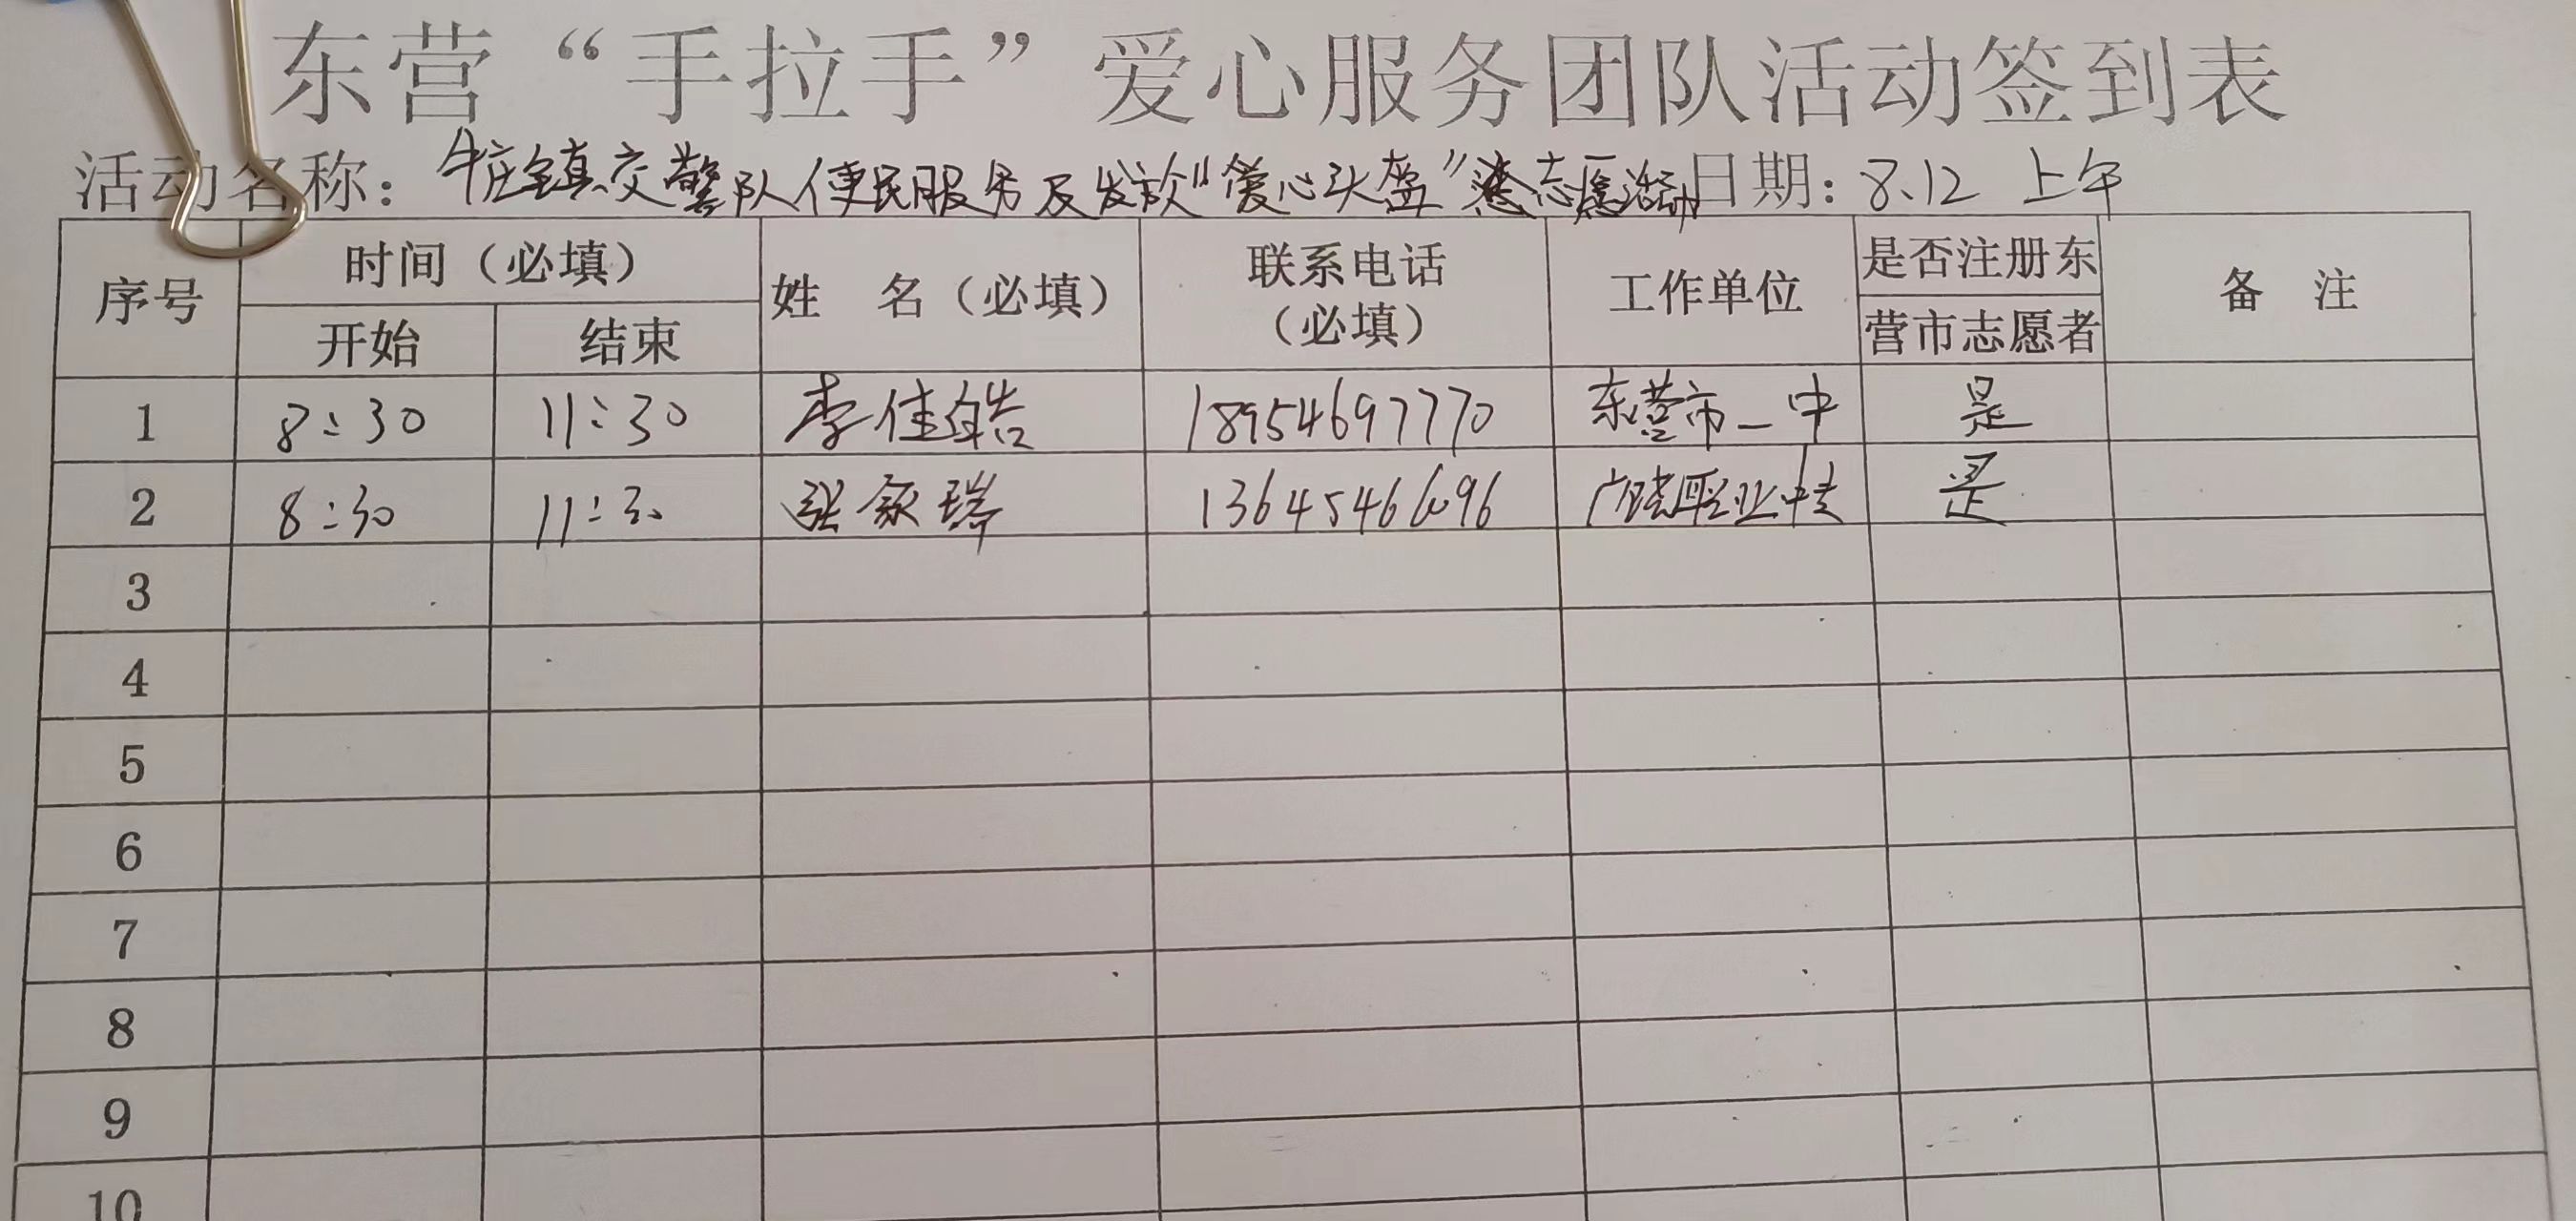 东营“手拉手”爱心服务团队活动签到表
活动名称：牛庄镇交警队便民服务及发放“爱心头盔”志愿活动 日期：8.12 上午
序号 时间（必填） 姓 名（必填） 联系电话（必填） 工作单位 是否注册东营市志愿者 备 注
开始 结束
1 8:30 11:30 李佳皓 18954697770 东营市一中 是
2 8:30 11:30 张 瑞 13645466696 广饶职业中专 是
3
4
5
6
7
8
9
10